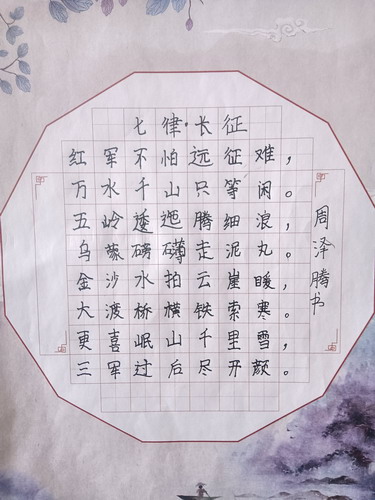 七律·长征
红军不怕远征难，
万水千山只等闲。
五岭逶迤腾细浪，
乌蒙磅礴走泥丸。
金沙水拍云崖暖，
大渡桥横铁索寒。
更喜岷山千里雪，
三军过后尽开颜。
周泽腾书